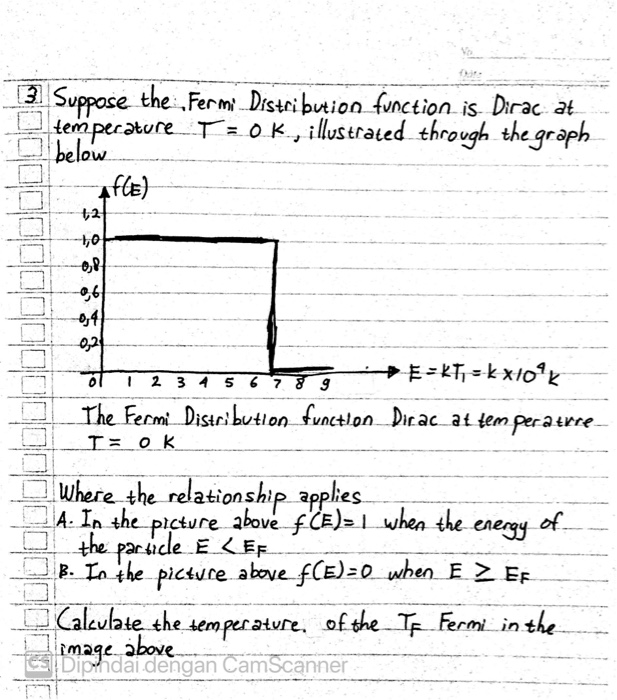 No
Date
3 Suppose the Fermi Distribution function is Dirac at
temperature T = 0 K, illustrated through the graph
below
f(E)
1,2
1,0
0,8
0,6
0,4
0,2
0 1 2 3 4 5 6 7 8 9
E = kT₁ = k x10⁴ K
The Fermi Distribution function Dirac at temperature
T = 0 K
Where the relationship applies
A. In the picture above f(E)=1 when the energy of
the particle E < EF
B. In the picture above f(E)=0 when E ≥ EF
Calculate the temperature. of the TF Fermi in the
image above
CS Dipindai dengan CamScanner